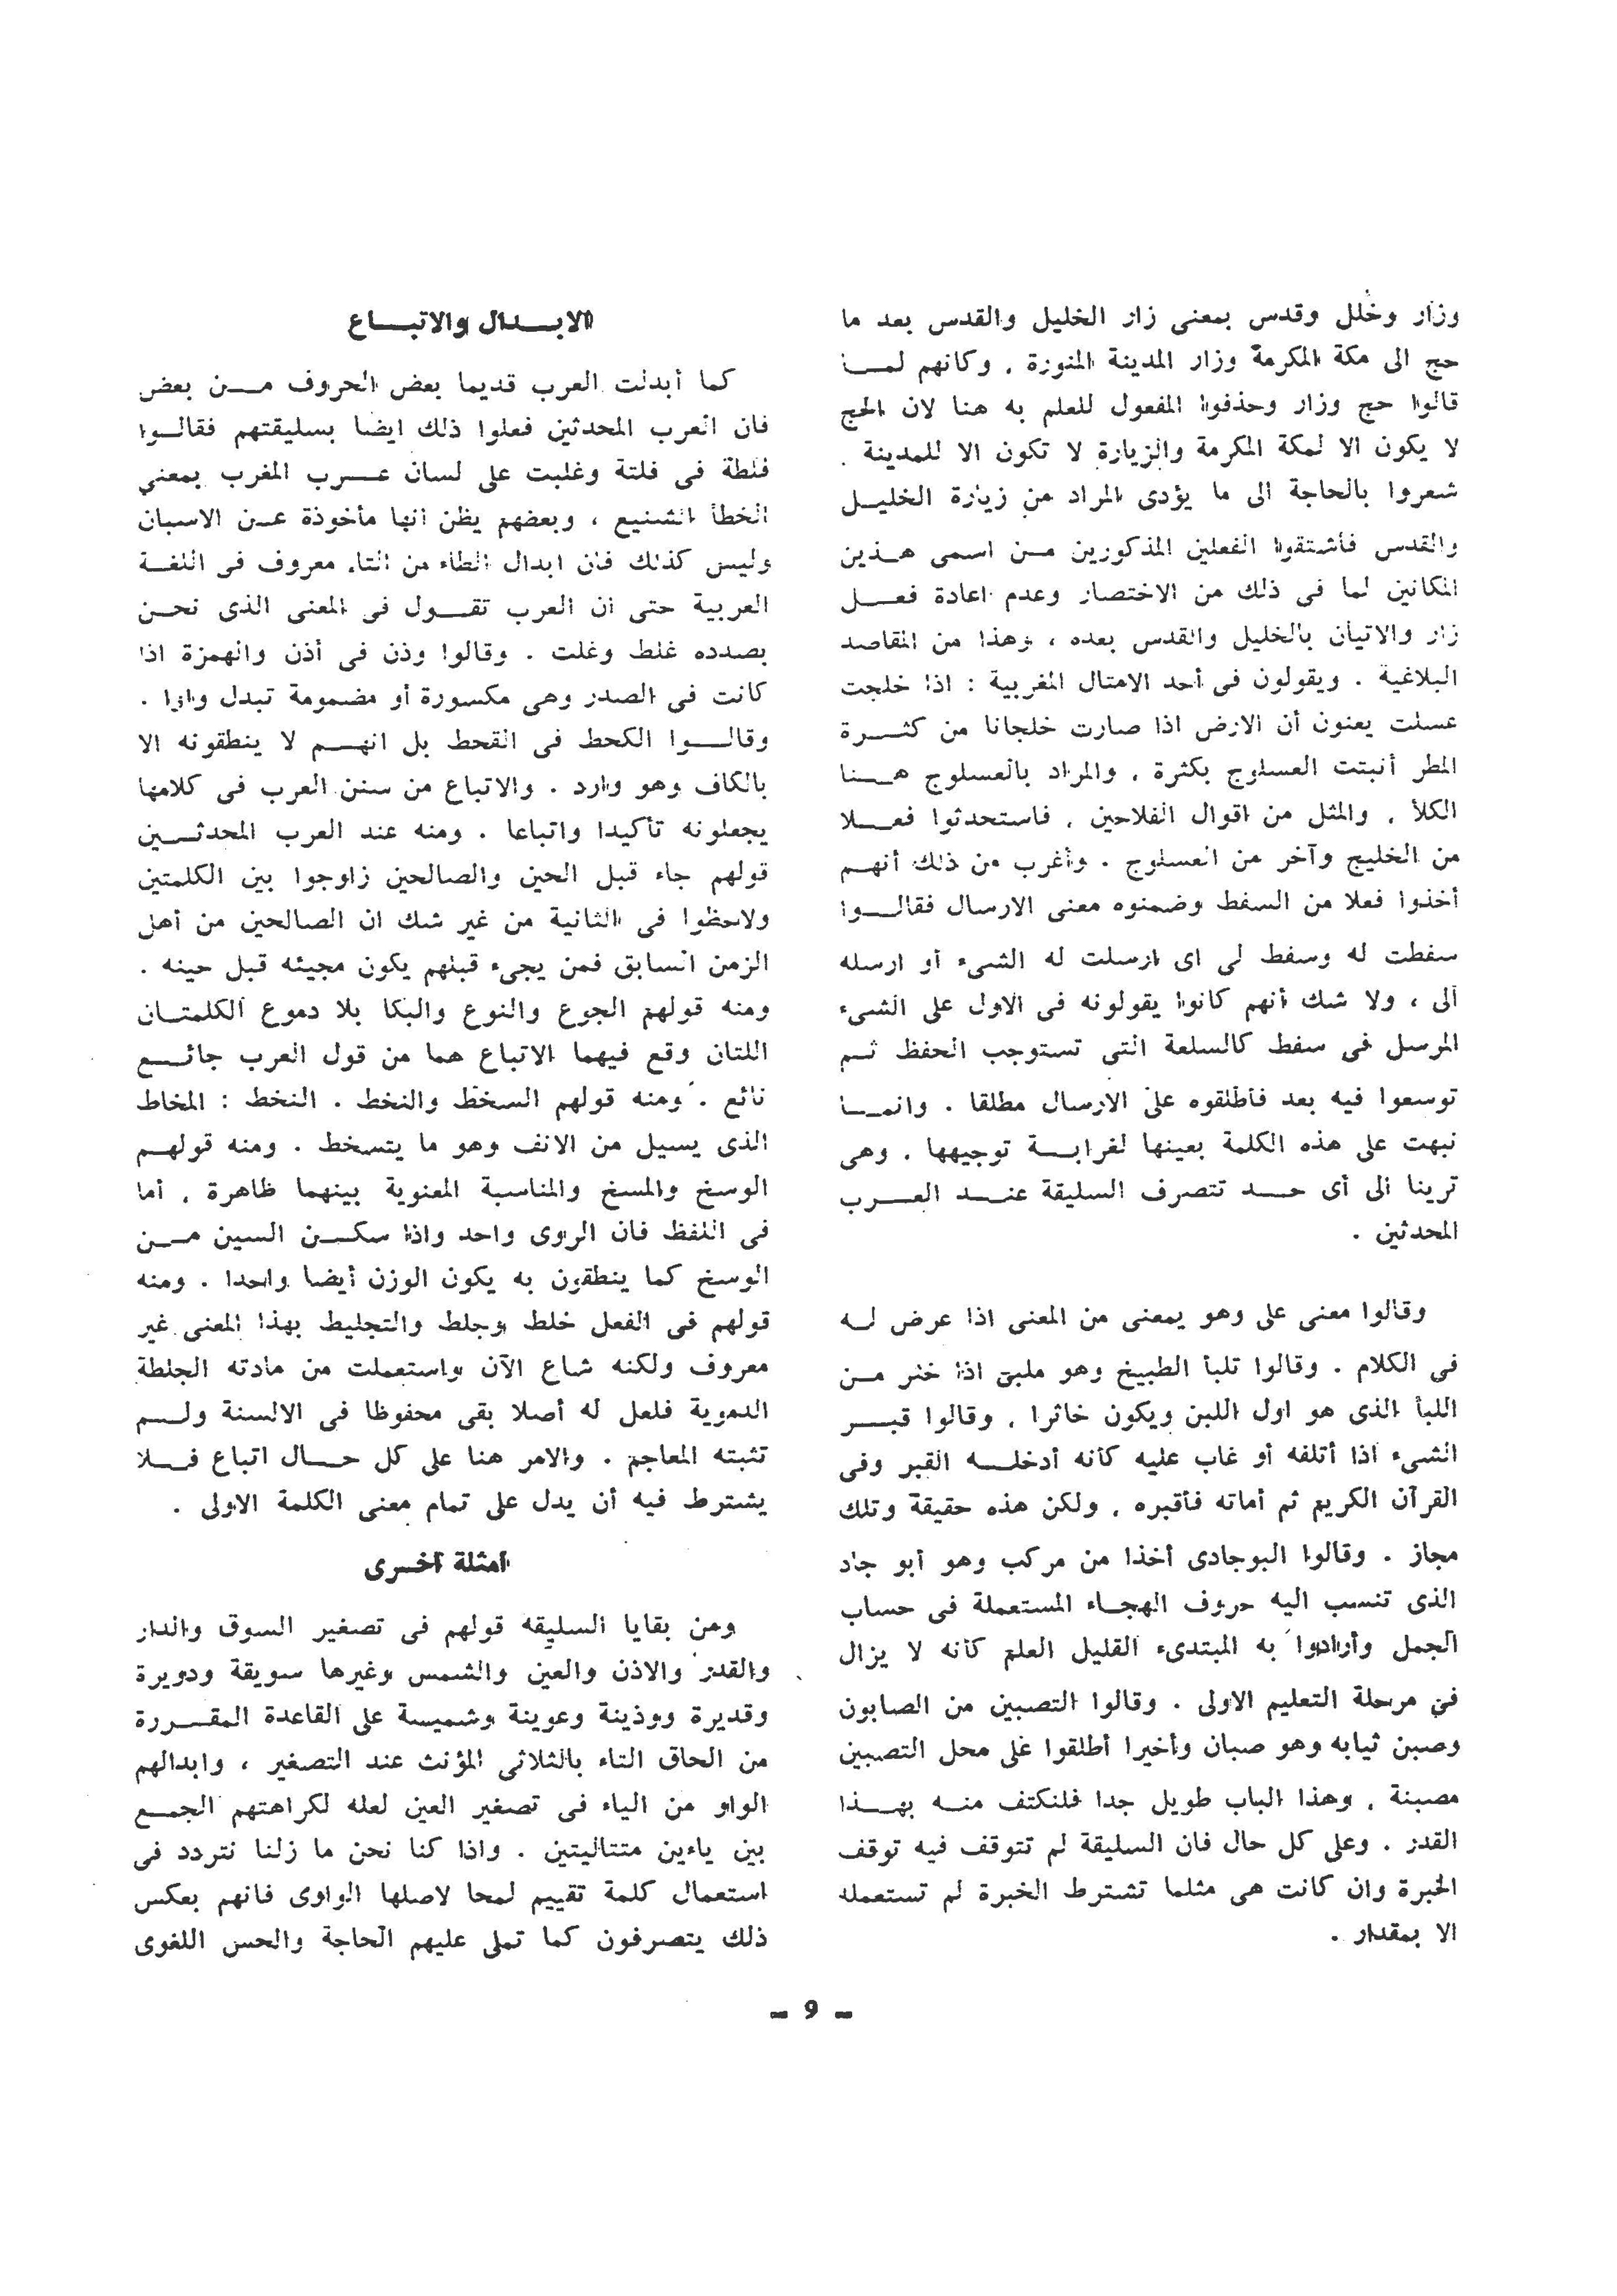 وزار وخلل وقدس بمعنى زار الخليل والقدس بعد ما
حج الى مكة المكرمة وزار المدينة المنورة . وكانهم لمــا
قالوا حج وزار وحذفوا المفعول للعلم به هنا لان الحج
لا يكون الا لمكة المكرمة والزيارة لا تكون الا للمدينة .
شعروا بالحاجة الى ما يؤدى المراد من زيارة الخليـل
والقدس فاشتقوا الفعلين المذكورين مـن اسمى هـذين
المكانين لما فى ذلك من الاختصار وعدم اعادة فعــل
زار والاتيان بالخليل والقدس بعده ، وهذا من المقاصد
البلاغية . ويقولون فى أحد الامثال المغربية : اذا خلجت
عسلت يعنون أن الارض اذا صارت خلجانا من كثـرة
المطر أنبتت العسلوج بكثرة . والمراد بالعسلوج هـنا
الكلأ . والمثل من اقوال الفلاحين . فاستحدثوا فعـلا
من الخليج وآخر من العسلوج . وأغرب من ذلك أنهـم
أخذوا فعلا من السفط وضمنوه معنى الارسال فقالـوا
سفطت له وسفط لى اى ارسلت له الشىء أو ارسله
الى ، ولا شك أنهم كانوا يقولونه فى الاول على الشىء
المرسل فى سفط كالسلعة التى تستوجب الحفظ ثـم
توسعوا فيه بعد فأطلقوه على الارسال مطلقا . وانمـا
نبهت على هذه الكلمة بعينها لغرابـة توجيهها . وهى
ترينا الى أى حـد تتصرف السليقة عنـد العـرب
المحدثين .
وقالوا معنى على وهو يمعنى من المعنى اذا عرض لـه
فى الكلام . وقالوا تلبأ الطبيخ وهو ملبىء اذا خثر مـن
اللبأ الذى هو اول اللبن ويكون خاثرا . وقالوا قبـر
الشىء اذا أتلفه أو غاب عليه كأنه أدخلـه القبر وفى
القرآن الكريم ثم أماته فأقبره . ولكن هذه حقيقة وتلك
مجاز . وقالوا البوجادى أخذا من مركب وهو أبو جاد
الذى تنسب اليه حروف الهجـاء المستعملة فى حساب
الجمل وأرادوا به المبتدىء القليل العلم كأنه لا يزال
فى مرحلة التعليم الاولى . وقالوا التصبين من الصابون
وصبن ثيابه وهو صبان وأخيرا أطلقوا على محل التصبين
مصبنة . وهذا الباب طويل جدا فلنكتف منـه بهـذا
القدر . وعلى كل حال فان السليقة لم تتوقف فيه توقف
الخبرة وان كانت هى مثلما تشترط الخبرة لم تستعمله
الا بمقدار .
الابـدال والاتبـاع
كما أبدلت العرب قديما بعض الحروف مـن بعض
فان العرب المحدثين فعلوا ذلك ايضا بسليقتهم فقالـوا
فلطة فى فلتة وغلبت على لسان عـرب المغرب بمعنى
الخطأ الشنيع ، وبعضهم يظن انها مأخوذة عـن الاسبان
وليس كذلك فان ابدال الطاء من التاء معروف فى اللغـة
العربية حتى ان العرب تقـول فى المعنى الذى نحـن
بصدده غلط وغلت . وقالوا وذن فى أذن والهمزة اذا
كانت فى الصدر وهى مكسورة أو مضمومة تبدل واوا .
وقالـوا الكحط فى القحط بل انهـم لا ينطقونه الا
بالكاف وهو وارد . والاتباع من سنن العرب فى كلامها
يجعلونه تأكيدا واتباعا . ومنه عند العرب المحدثـين
قولهم جاء قبل الحين والصالحين زاوجوا بين الكلمتين
ولاحظوا فى الثانية من غير شك ان الصالحين من أهل
الزمن السابق فمن يجىء قبلهم يكون مجيئه قبل حينه .
ومنه قولهم الجوع والنوع والبكا بلا دموع الكلمتـان
اللتان وقع فيهما الاتباع هما من قول العرب جائـع
نائع . ومنه قولهم السخط والنخط . النخط : المخاط
الذى يسيل من الانف وهو ما يتسخط . ومنه قولهـم
الوسخ والمسخ والمناسبة المعنوية بينهما ظاهرة . أما
فى اللفظ فان الروى واحد واذا سكـن السين مـن
الوسخ كما ينطقون به يكون الوزن أيضا واحدا . ومنه
قولهم فى الفعل خلط وجلط والتجليط بهذا المعنى غير
معروف ولكنه شاع الآن واستعملت من مادته الجلطة
الدموية فلعل له أصلا بقى محفوظا فى الالسنة ولـم
تثبته المعاجم . والامر هنا على كل حـال اتباع فـلا
يشترط فيه أن يدل على تمام معنى الكلمة الاولى .
أمثلة أخـرى
ومن بقايا السليقة قولهم فى تصغير السوق والدار
والقدر والاذن والعين والشمس وغيرها سويقة ودويرة
وقديرة ووذينة وعوينة وشميسة على القاعدة المقـررة
من الحاق التاء بالثلاثى المؤنث عند التصغير ، وابدالهم
الواو من الياء فى تصغير العين لعله لكراهتهم الجمـع
بين ياءين متتاليتين . واذا كنا نحن ما زلنا نتردد فى
استعمال كلمة تقييم لمحا لاصلها الواوى فانهم بعكس
ذلك يتصرفون كما تملى عليهم الحاجة والحس اللغوى
- 9 -